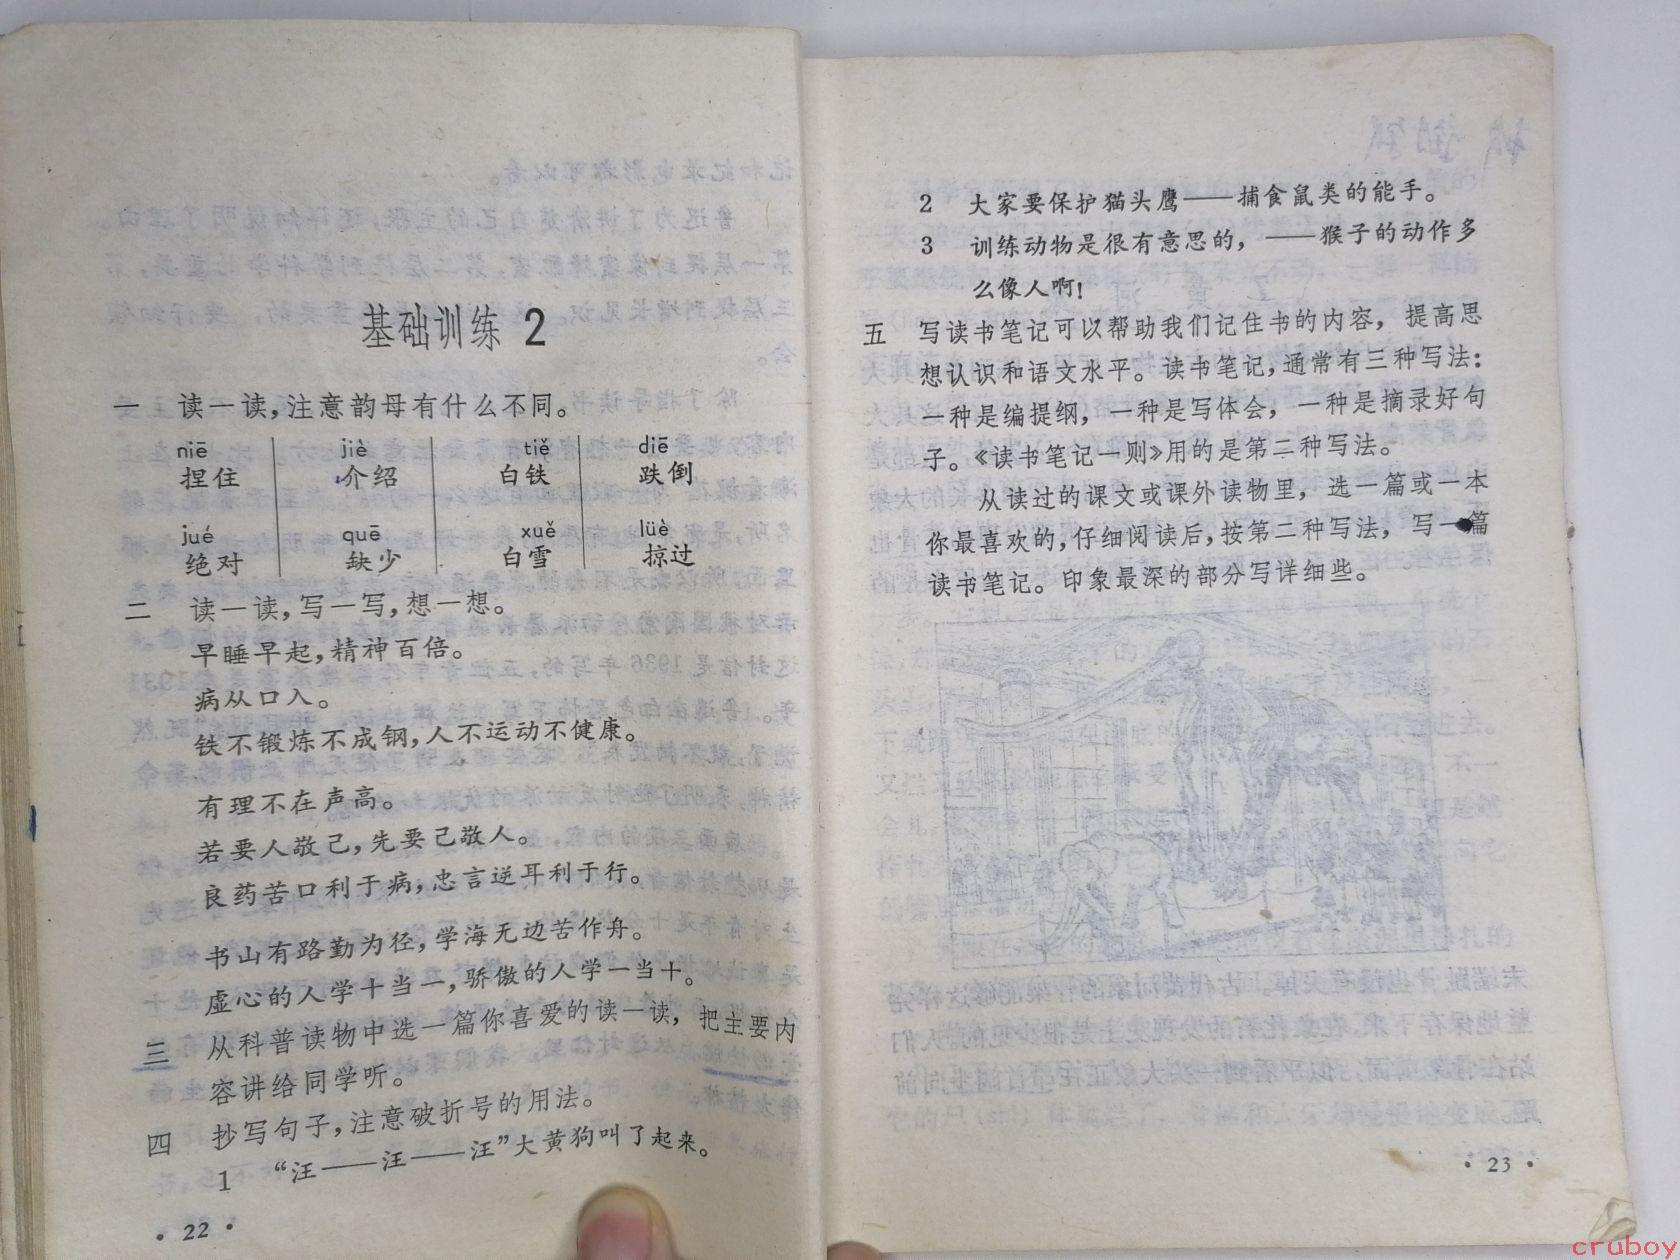 基础训练 2
一 读一读，注意韵母有什么不同。
niē jiè tiě diē
捏住 介绍 白铁 跌倒
jué quē xuě lüè
绝对 缺少 白雪 掠过
二 读一读，写一写，想一想。
早睡早起，精神百倍。
病从口入。
铁不锻炼不成钢，人不运动不健康。
有理不在声高。
若要人敬己，先要己敬人。
良药苦口利于病，忠言逆耳利于行。
书山有路勤为径，学海无边苦作舟。
虚心的人学十当一，骄傲的人学一当十。
三 从科普读物中选一篇你喜爱的读一读，把主要内
容讲给同学听。
四 抄写句子，注意破折号的用法。
1 “汪——汪——汪”大黄狗叫了起来。
· 22 ·
2 大家要保护猫头鹰——捕食鼠类的能手。
3 训练动物是很有意思的，——猴子的动作多
么像人啊！
五 写读书笔记可以帮助我们记住书的内容，提高思
想认识和语文水平。读书笔记，通常有三种写法：
一种是编提纲，一种是写体会，一种是摘录好句
子。《读书笔记一则》用的是第二种写法。
从读过的课文或课外读物里，选一篇或一本
你最喜欢的，仔细阅读后，按第二种写法，写一篇
读书笔记。印象最深的部分写详细些。
· 23 ·
cruboy